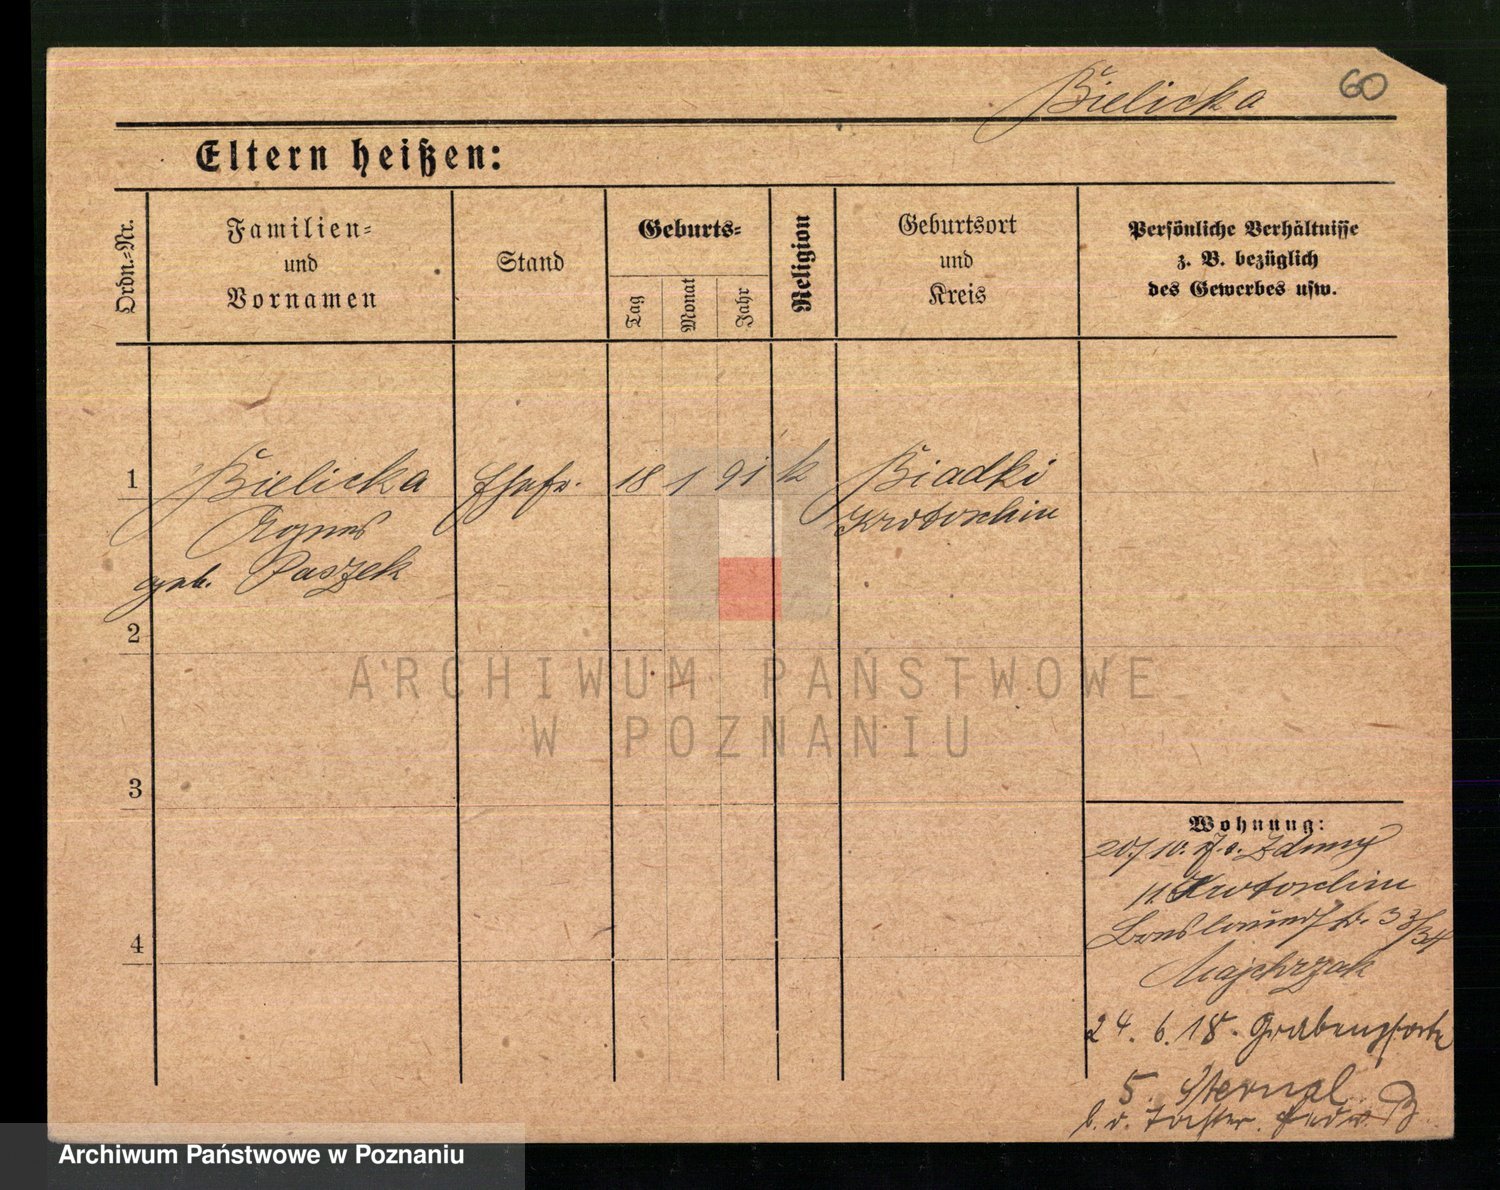 Bielicka 60
Eltern heißen:
Ordn.-Nr.
Familien-
und
Vornamen
Stand
Geburts-
Tag
Monat
Jahr
Religion
Geburtsort
und
Kreis
Persönliche Verhältnisse
z. B. bezüglich
des Gewerbes usw.
1 Bielicka Ehefr. 18 1 91 k Biadki
Agnes Krotoschin
geb. Paszek
2
3
4
Wohnung:
20/10. Zduny
Krotoschin
Breslauerstr. 33/34
Majchrzak
24. 6. 18. Grabenpforte
5. Sternal
b. d. Tochter
ARCHIWUM PAŃSTWOWE
W POZNANIU
Archiwum Państwowe w Poznaniu